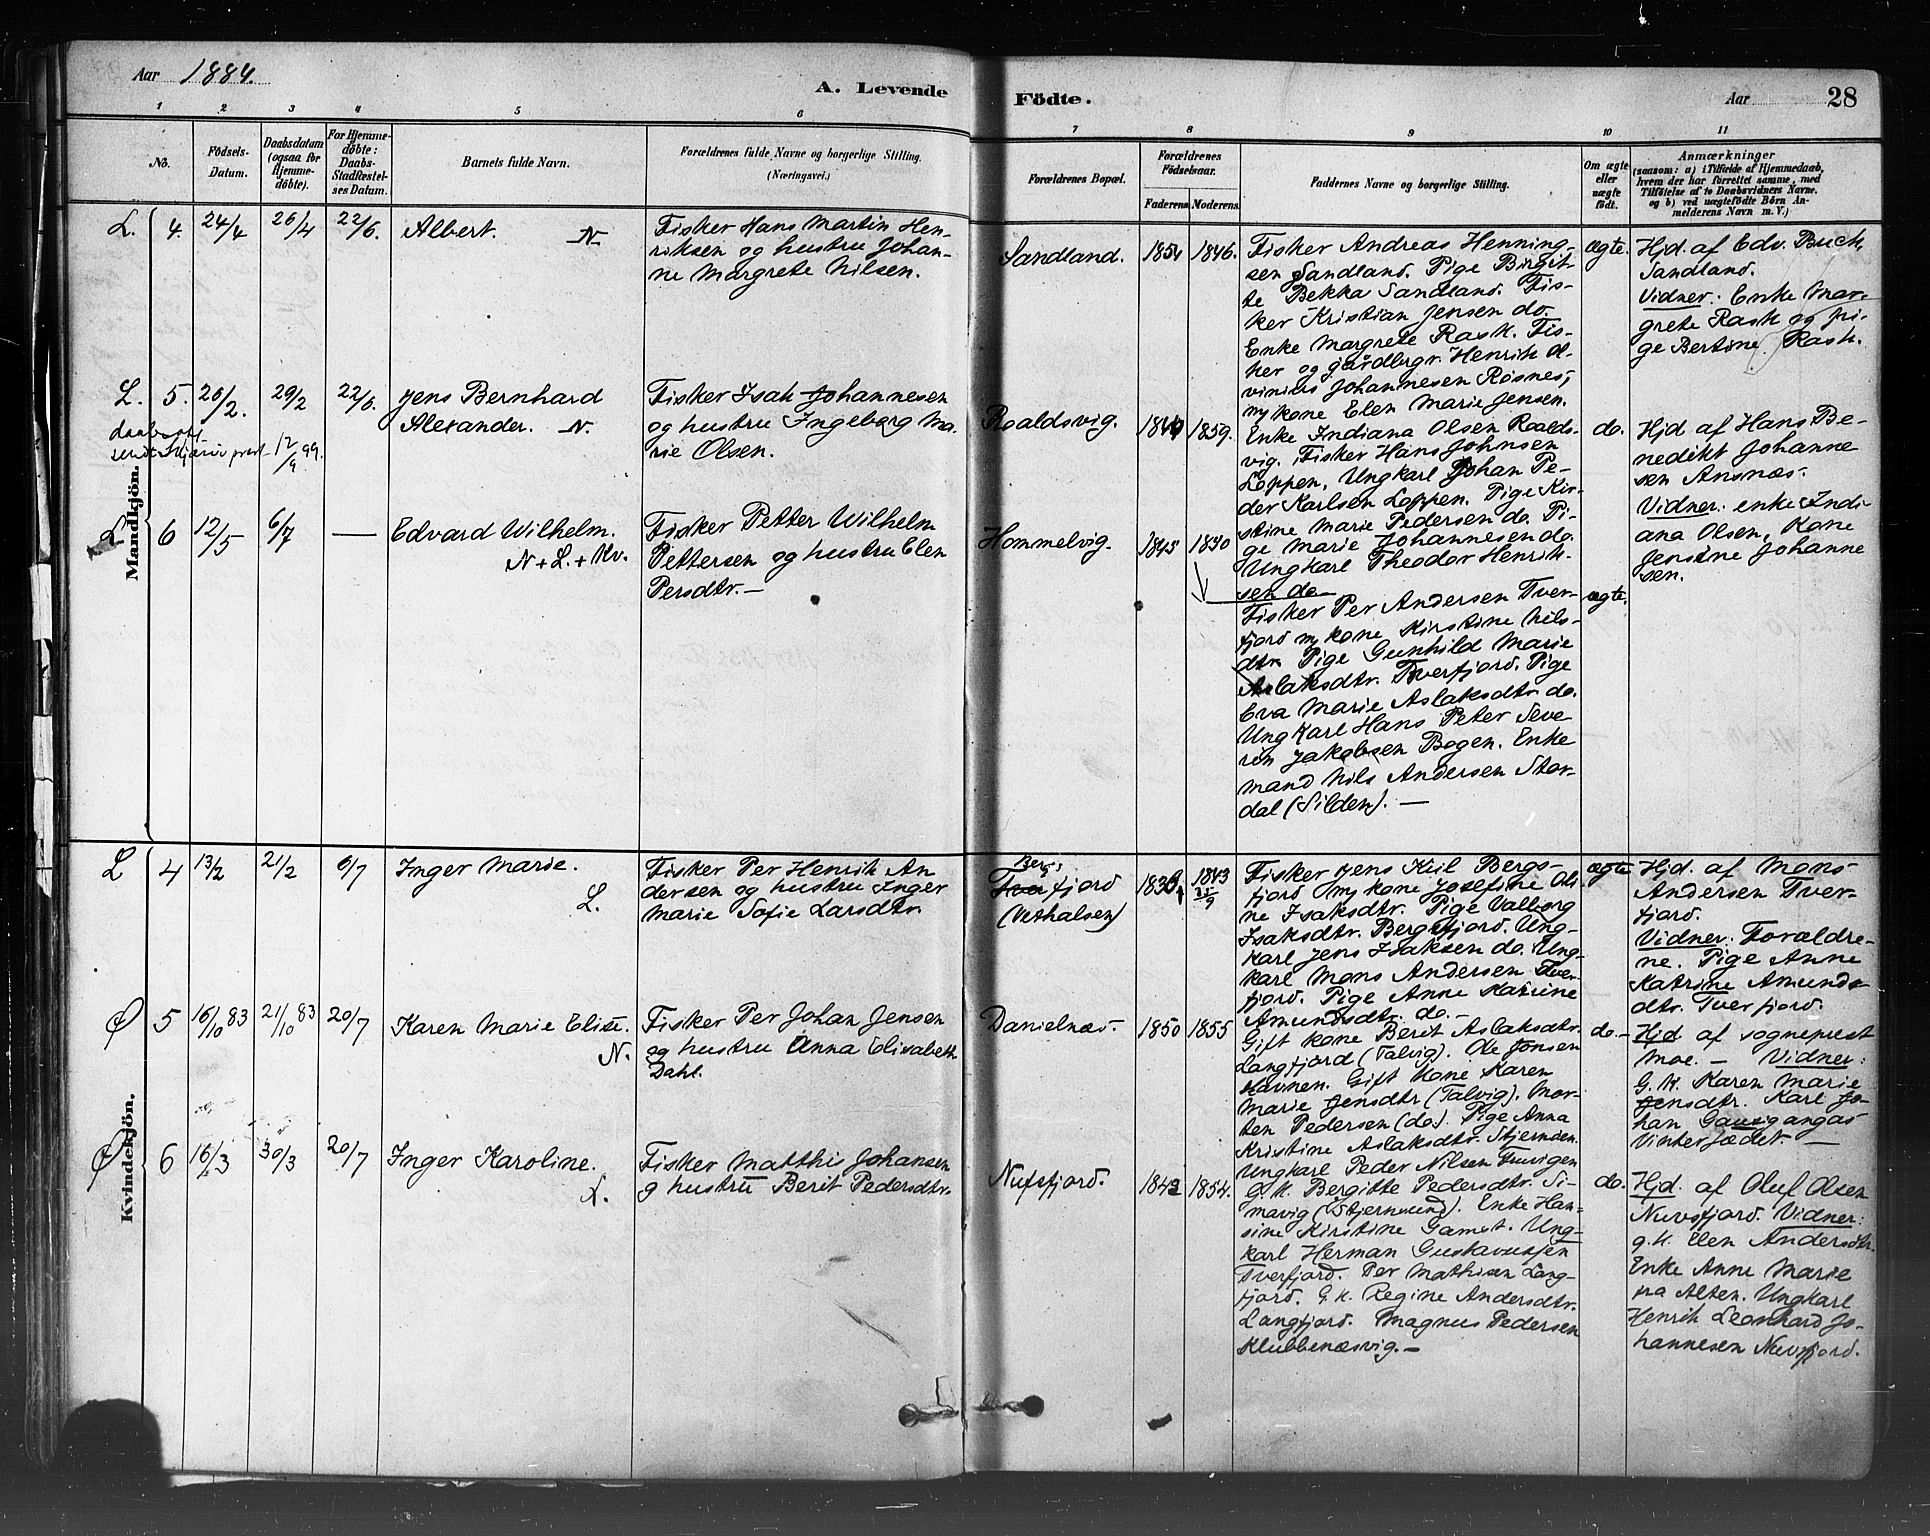 Aar 1884.
A. Levende
Födte.
Aar
28
1
2
3
4
5
6
7
8
9
10
11
No.
Födsels-
Datum.
Daabsdatum
(ogsaa for
Hjemme-
döbte).
For Hjemme-
döbte:
Daabs-
Stadfæstel-
ses Datum.
Barnets fulde Navn.
Forældrenes fulde Navne og borgerlige Stilling.
(Næringsvei.)
Forældrenes Bopæl.
Forældrenes
Födselsaar.
Faderens
Moderens.
Faddernes Navne og borgerlige Stilling.
Om ægte
eller
uægte
födt.
Anmærkninger
(saasom: a) i Tilfælde af Hjemmedaab,
hvem der har forrettet samme, med
Tilföielse af to Daabsvidners Navne,
og b) ved uægtefödte Börn An-
melderens Navn m. V.)
Mandkjön.
L. 4. 24/4 26/4 22/6. Albert. N
Fisker Hans Martin Hen-
riksen og hustru Johan-
ne Margrete Nilsen.
Sandland. 1854 1846.
Fisker Andreas Henning-
sen Sandland. Pige Birgit-
te Bekka Sandland. Fis-
ker Kristian Jensen do.
Enke Margrete Rask. Fis-
ker og gårdbrgr. Henrik Ol-
vinius Johannesen Røsnes,
m/kone Elen Marie Jensen.
ægte.
Hjd. af Edv. Buck,
Sandland.
Vidner: Enke Mar-
grete Rask og pi-
ge Bertine Rask.
L. 5. 26/2. 29/2 22/6. Jens Bernhard
Alexander. N.
12/9 99.
Fisker Isak Johannesen
og hustru Ingeborg Ma-
rie Olsen.
Roaldsvig. 1859.
Enke Indiana Olsen Roalds-
vig. Fisker Hans Johnsen
Loppen, Ungkarl Johan Pe-
der Karlsen Loppen. Pige Kir-
stine Marie Pedersen do. Pi-
ge Marie Johannesen do.
Ungkarl Theodor Henrik-
sen do
do.
Hjd af Hans Be-
nedikt Johanne
sen Ansnæs.
Vidner: enke Indi
ana Olsen, Kone
Jensine Johanne
sen.
L 6 12/5 6/7 — Edvard Wilhelm.
N + L. + Kv.
Fisker Petter Wilhelm
Pettersen og hustru Elen
Persdtr. —
Hommelvig. 1845 1840
Fisker Per Andersen Tver-
fjord m/kone Kirstine Nils-
dtr. Pige Gunhild Marie
Aslaksdtr. Tverfjord. Pige
Eva Marie Aslaksdtr. do.
Ungkarl Hans Peter Seve
rin Jakobsen Bogen. Enke
mand Nils Andersen Stor-
dal (Silden). —
ægte.
Kvindekjön.
L 4 13/2 21/2 6/7 Inger Marie.
L.
Fisker Per Henrik An
dersen og hustru Inger
Marie Sofie Larsdtr.
Bergs
fjord
1843
Fisker Jens Kiil Bergs-
fjord m/kone Josefine Oli
ne Isaksdtr. Pige Valborg
Isaksdtr. Bergsfjord. Ung-
karl Jens Isaksen do. Ung-
karl Mons Andersen Tver-
fjord. Pige Anne Katrine
Amundsdtr. do. —
ægte
Hjd. af Mons
Andersen Tver-
fjord.
Vidner: Forældre-
ne. Pige Anne
Katrine Amunds
dtr. Tverfjord.
Ø 5 16/10 83 21/10 83 20/7 Karen Marie Elise.
N.
Fisker Per Johan Jensen
og hustru Anna Elisabeth
Dahl.
Danielnæs. 1850 1855
Gift kone Berit Aslaksdtr.
Langfjord (Talvig). Ole Jonsen
Havnen. Gift kone Karen
Marie Jensdtr (Talvig). Mor-
ten Pedersen (do). Pige Anna
Kristine Aslaksdtr. Stjernøen.
Ungkarl Peder Nilsen
do. —
Hjd af sogneprest
Moe. — Vidner:
G. K. Karen Marie
Jensdtr. Karl Jo-
han
Vinterfædet. —
Ø 6 16/3 30/3 20/7 Inger Karoline.
L.
Fisker Matthis Johansen
g hustru Berit Pedersdtr.
Nufsfjord. 1842 1854.
G. K. Bergitte Pedersdtr. Si-
mavig (Stjernsund). Enke Han-
sine Kirstine Gamst. Ung-
karl Herman Gustavussen
Tverfjord. Per Mathisen Lang-
fjord. G. K. Regine Andersdtr.
Langfjord. Magnus Pedersen
Klubbenæsvig. —
do.
Hjd. af Oluf Olsen
Nuvsfjord. Vidner:
g. K. Elen Andersdtr.
Enke Anne Marie
fra Alten. Ungkarl
Henrik Leonhard Jo-
hannesen Nuvsfjord.